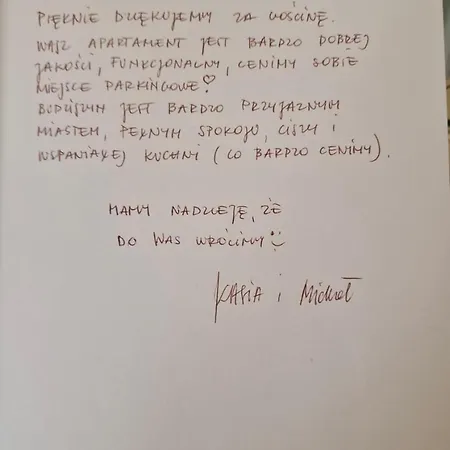 PIĘKNIE DZIĘKUJEMY ZA GOŚCINĘ.
WASZ APARTAMENT JEST BARDZO DOBREJ
JAKOŚCI, FUNKCJONALNY, CENIMY SOBIE
MIEJSCE PARKINGOWE!
BUDZISZYN JEST BARDZO PRZYJAZNYM
MIASTEM, PEŁNYM SPOKOJU, CISZY I
WSPANIAŁEJ KUCHNI (CO BARDZO CENIMY).
MAMY NADZIEJĘ, ŻE
DO WAS WRÓCIMY
KASIA i Michał